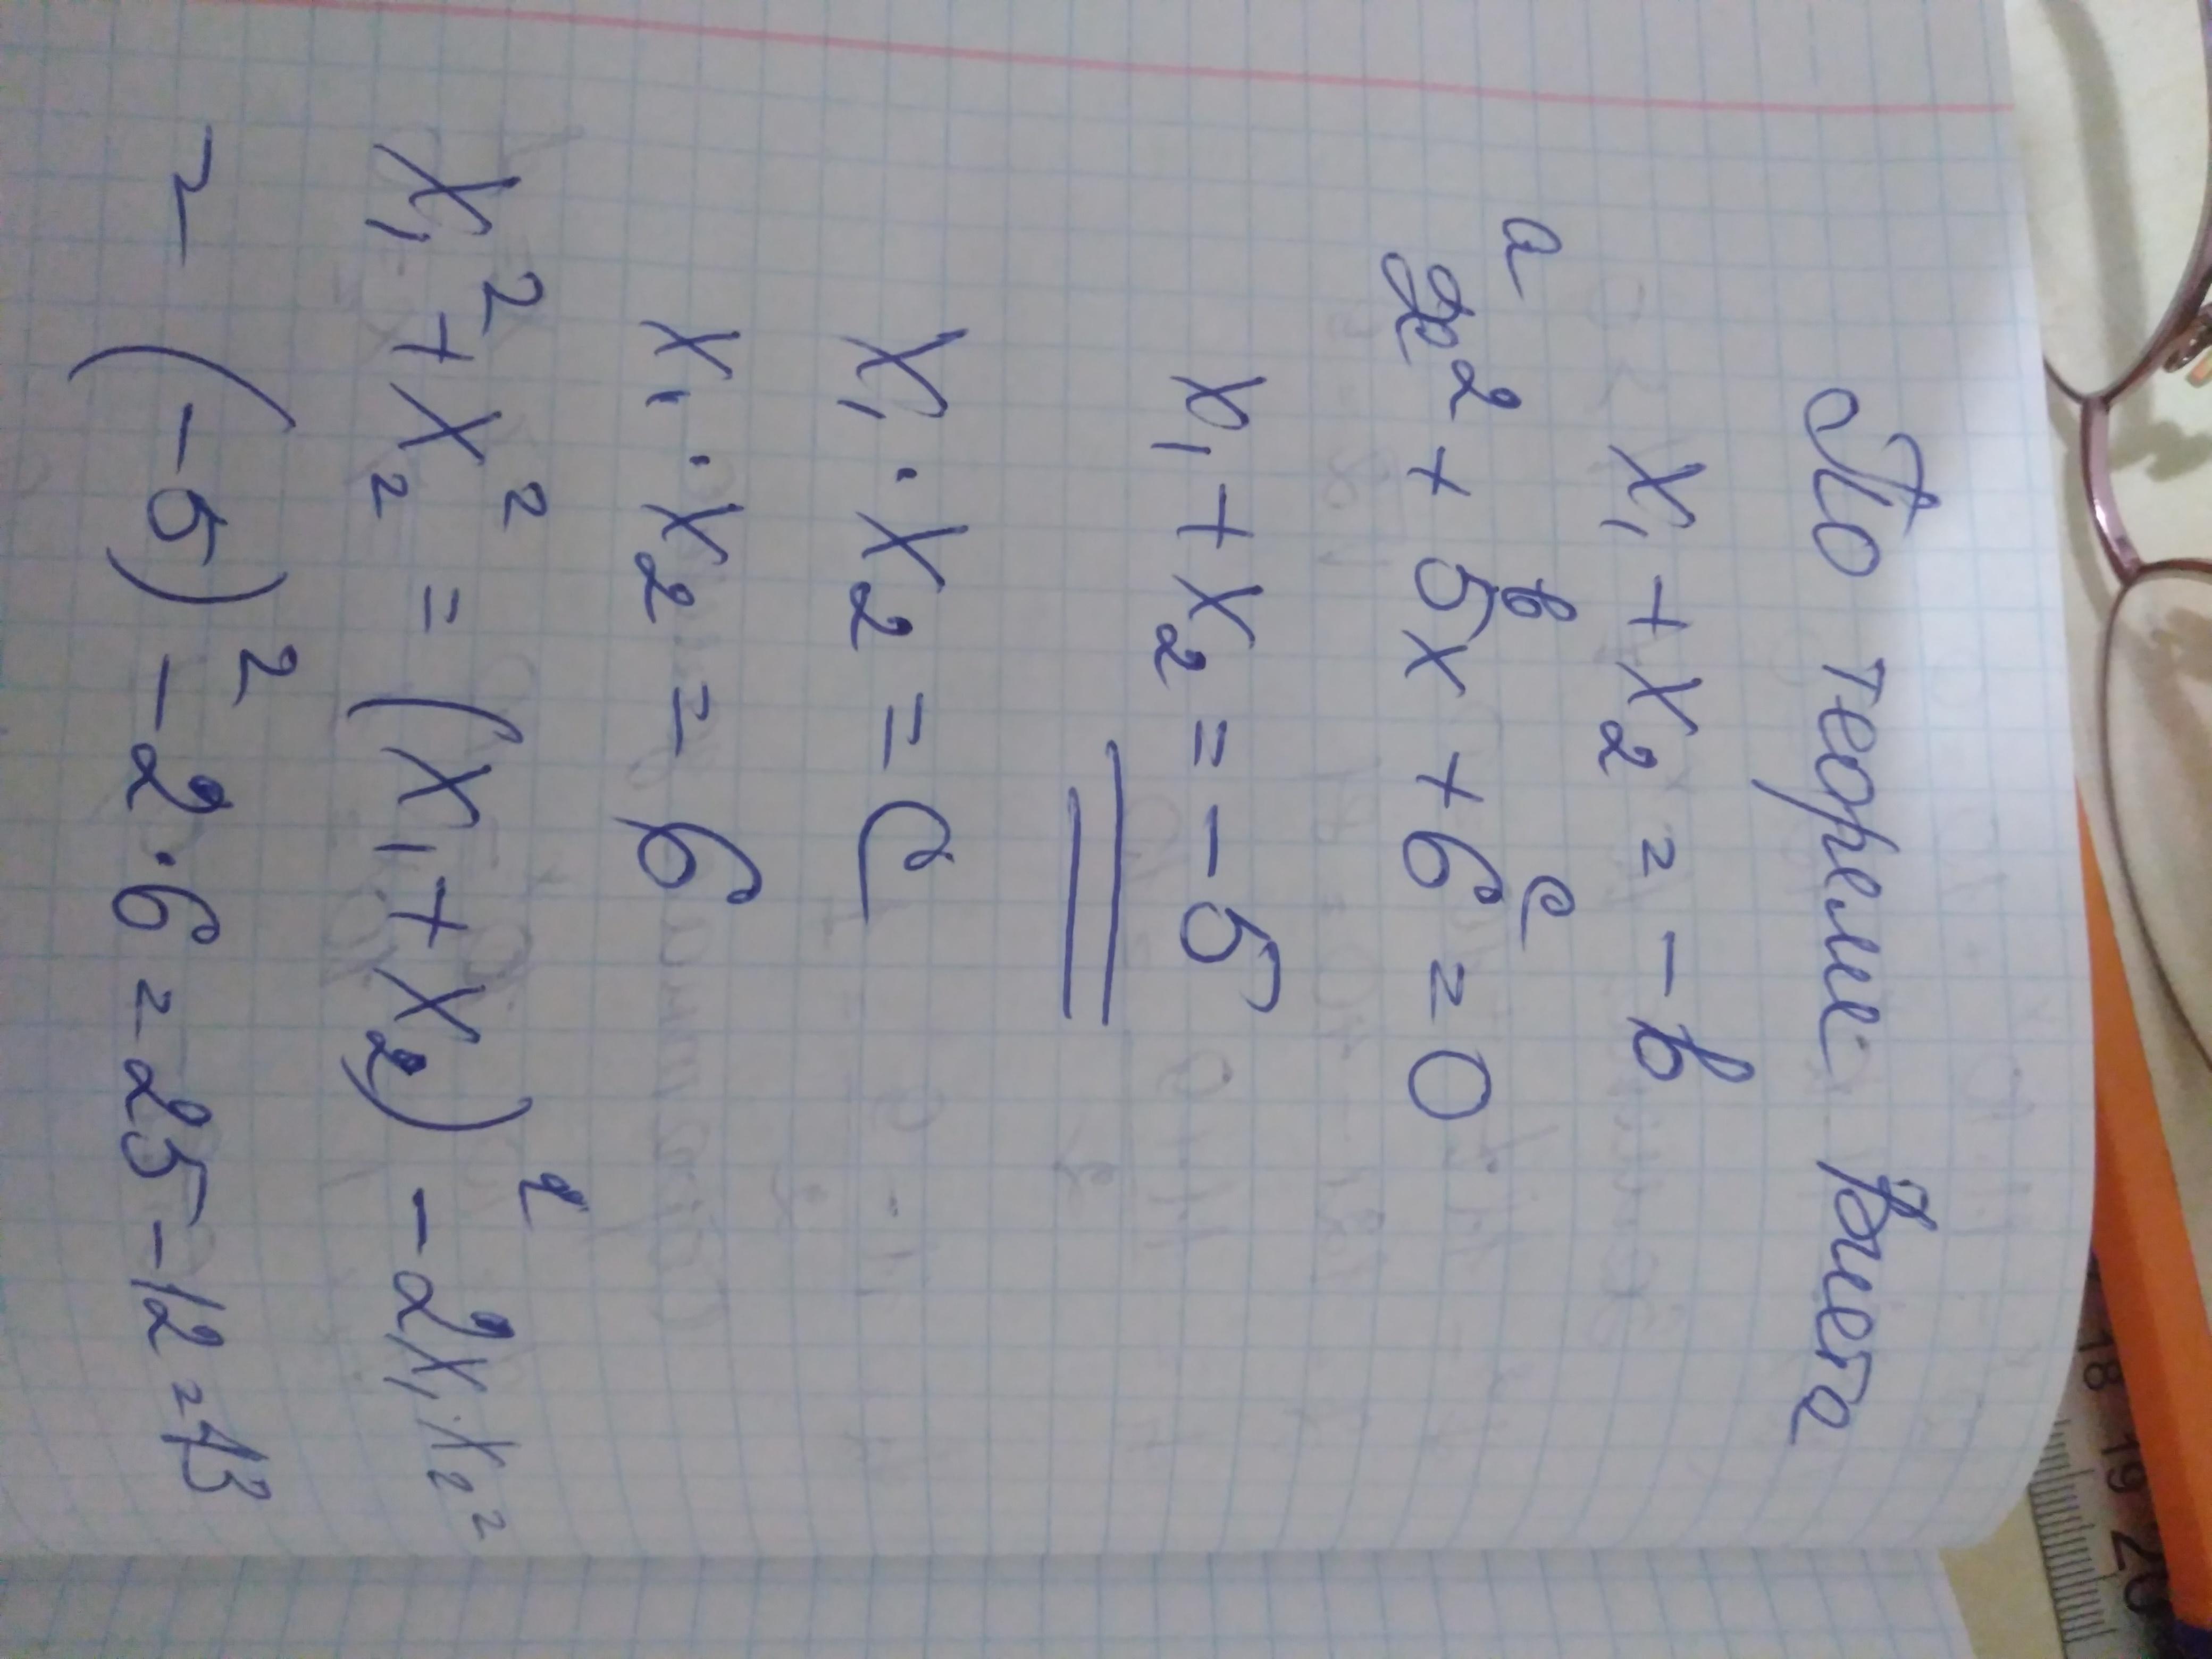 По теореме Виета
x₁ + x₂ = -в
a в c
x² + 5x + 6 = 0
x₁ + x₂ = -5
x₁ · x₂ = c
x₁ · x₂ = 6
x₁² + x₂² = (x₁ + x₂)² - 2x₁·x₂ =
= (-5)² - 2·6 = 25 - 12 = 13
18 19 20